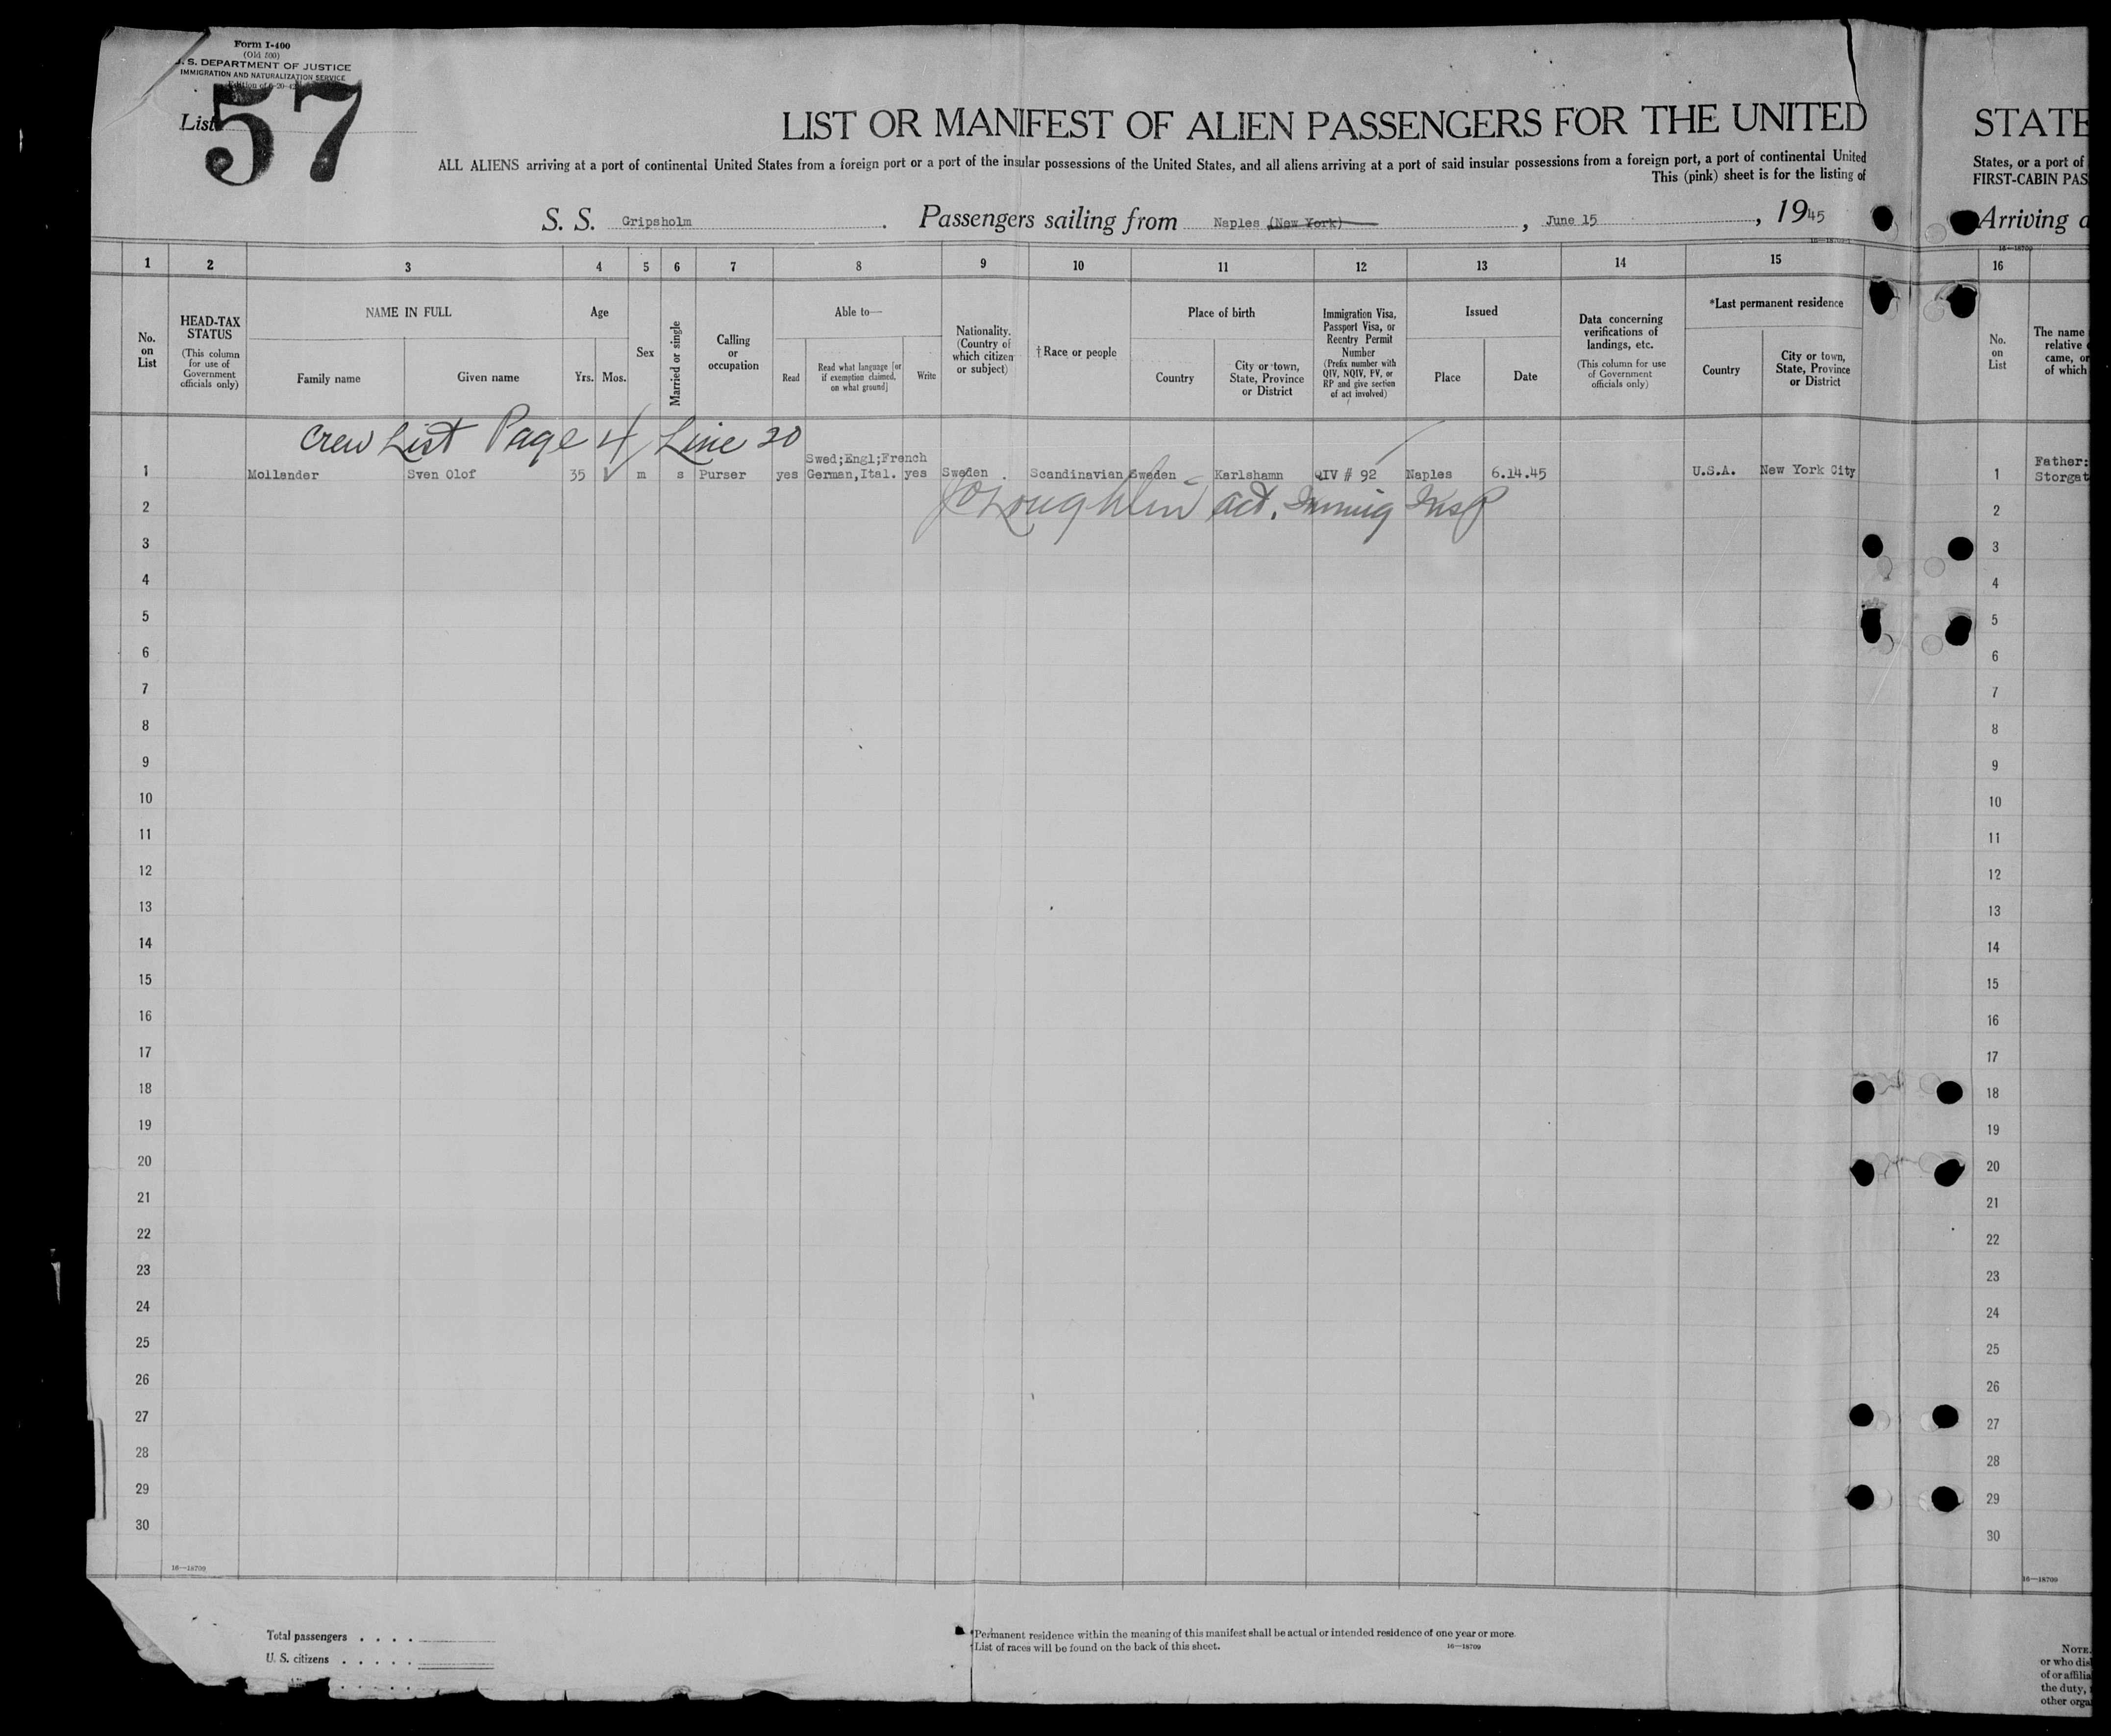 Form I-400
(Old 500)
U. S. DEPARTMENT OF JUSTICE
IMMIGRATION AND NATURALIZATION SERVICE
Edition of
List 57
LIST OR MANIFEST OF ALIEN PASSENGERS FOR THE UNITED
ALL ALIENS arriving at a port of continental United States from a foreign port or a port of the insular possessions of the United States, and all aliens arriving at a port of said insular possessions from a foreign port, a port of continental United
This (pink) sheet is for the listing of
S. S. Gripsholm. Passengers sailing from Naples (New York), June 15, 1945
16—18709-1
1 2 3 4 5 6 7 8 9 10 11 12 13 14 15
No. on List
HEAD-TAX STATUS
(This column for use of Government officials only)
NAME IN FULL
Family name
Given name
Age
Yrs. Mos.
Sex
Married or single
Calling or occupation
Able to—
Read
Read what language [or if exemption claimed, on what ground]
Write
Nationality. (Country of which citizen or subject)
†Race or people
Place of birth
Country
City or town, State, Province or District
Immigration Visa, Passport Visa, or Reentry Permit Number
(Prefix number with QIV, NQIV, PV, or RP and give section of act involved)
Issued
Place
Date
Data concerning verifications of landings, etc.
(This column for use of Government officials only)
*Last permanent residence
Country
City or town, State, Province or District
Crew List Page 4 Line 20
1 Mollander Sven Olof 35 ✓ m s Purser yes Swed;Engl;French German,Ital. yes Sweden Scandinavian Sweden Karlshamn QIV # 92 Naples 6.14.45 U.S.A. New York City
JO Loughlin act. Immig Insp
2
3
4
5
6
7
8
9
10
11
12
13
14
15
16
17
18
19
20
21
22
23
24
25
26
27
28
29
30
16—18709
Total passengers . . . .
U. S. citizens . . . . .
*Permanent residence within the meaning of this manifest shall be actual or intended residence of one year or more.
†List of races will be found on the back of this sheet.
16—18709
STATE
States, or a port of
FIRST-CABIN PAS
Arriving a
16—18709
16
No. on List
The name
relative
came, or
of which
1 Father:
Storgat
2
3
4
5
6
7
8
9
10
11
12
13
14
15
16
17
18
19
20
21
22
23
24
25
26
27
28
29
30
16—18709
NOTE.
or who dis
of or affilia
the duty,
other orga